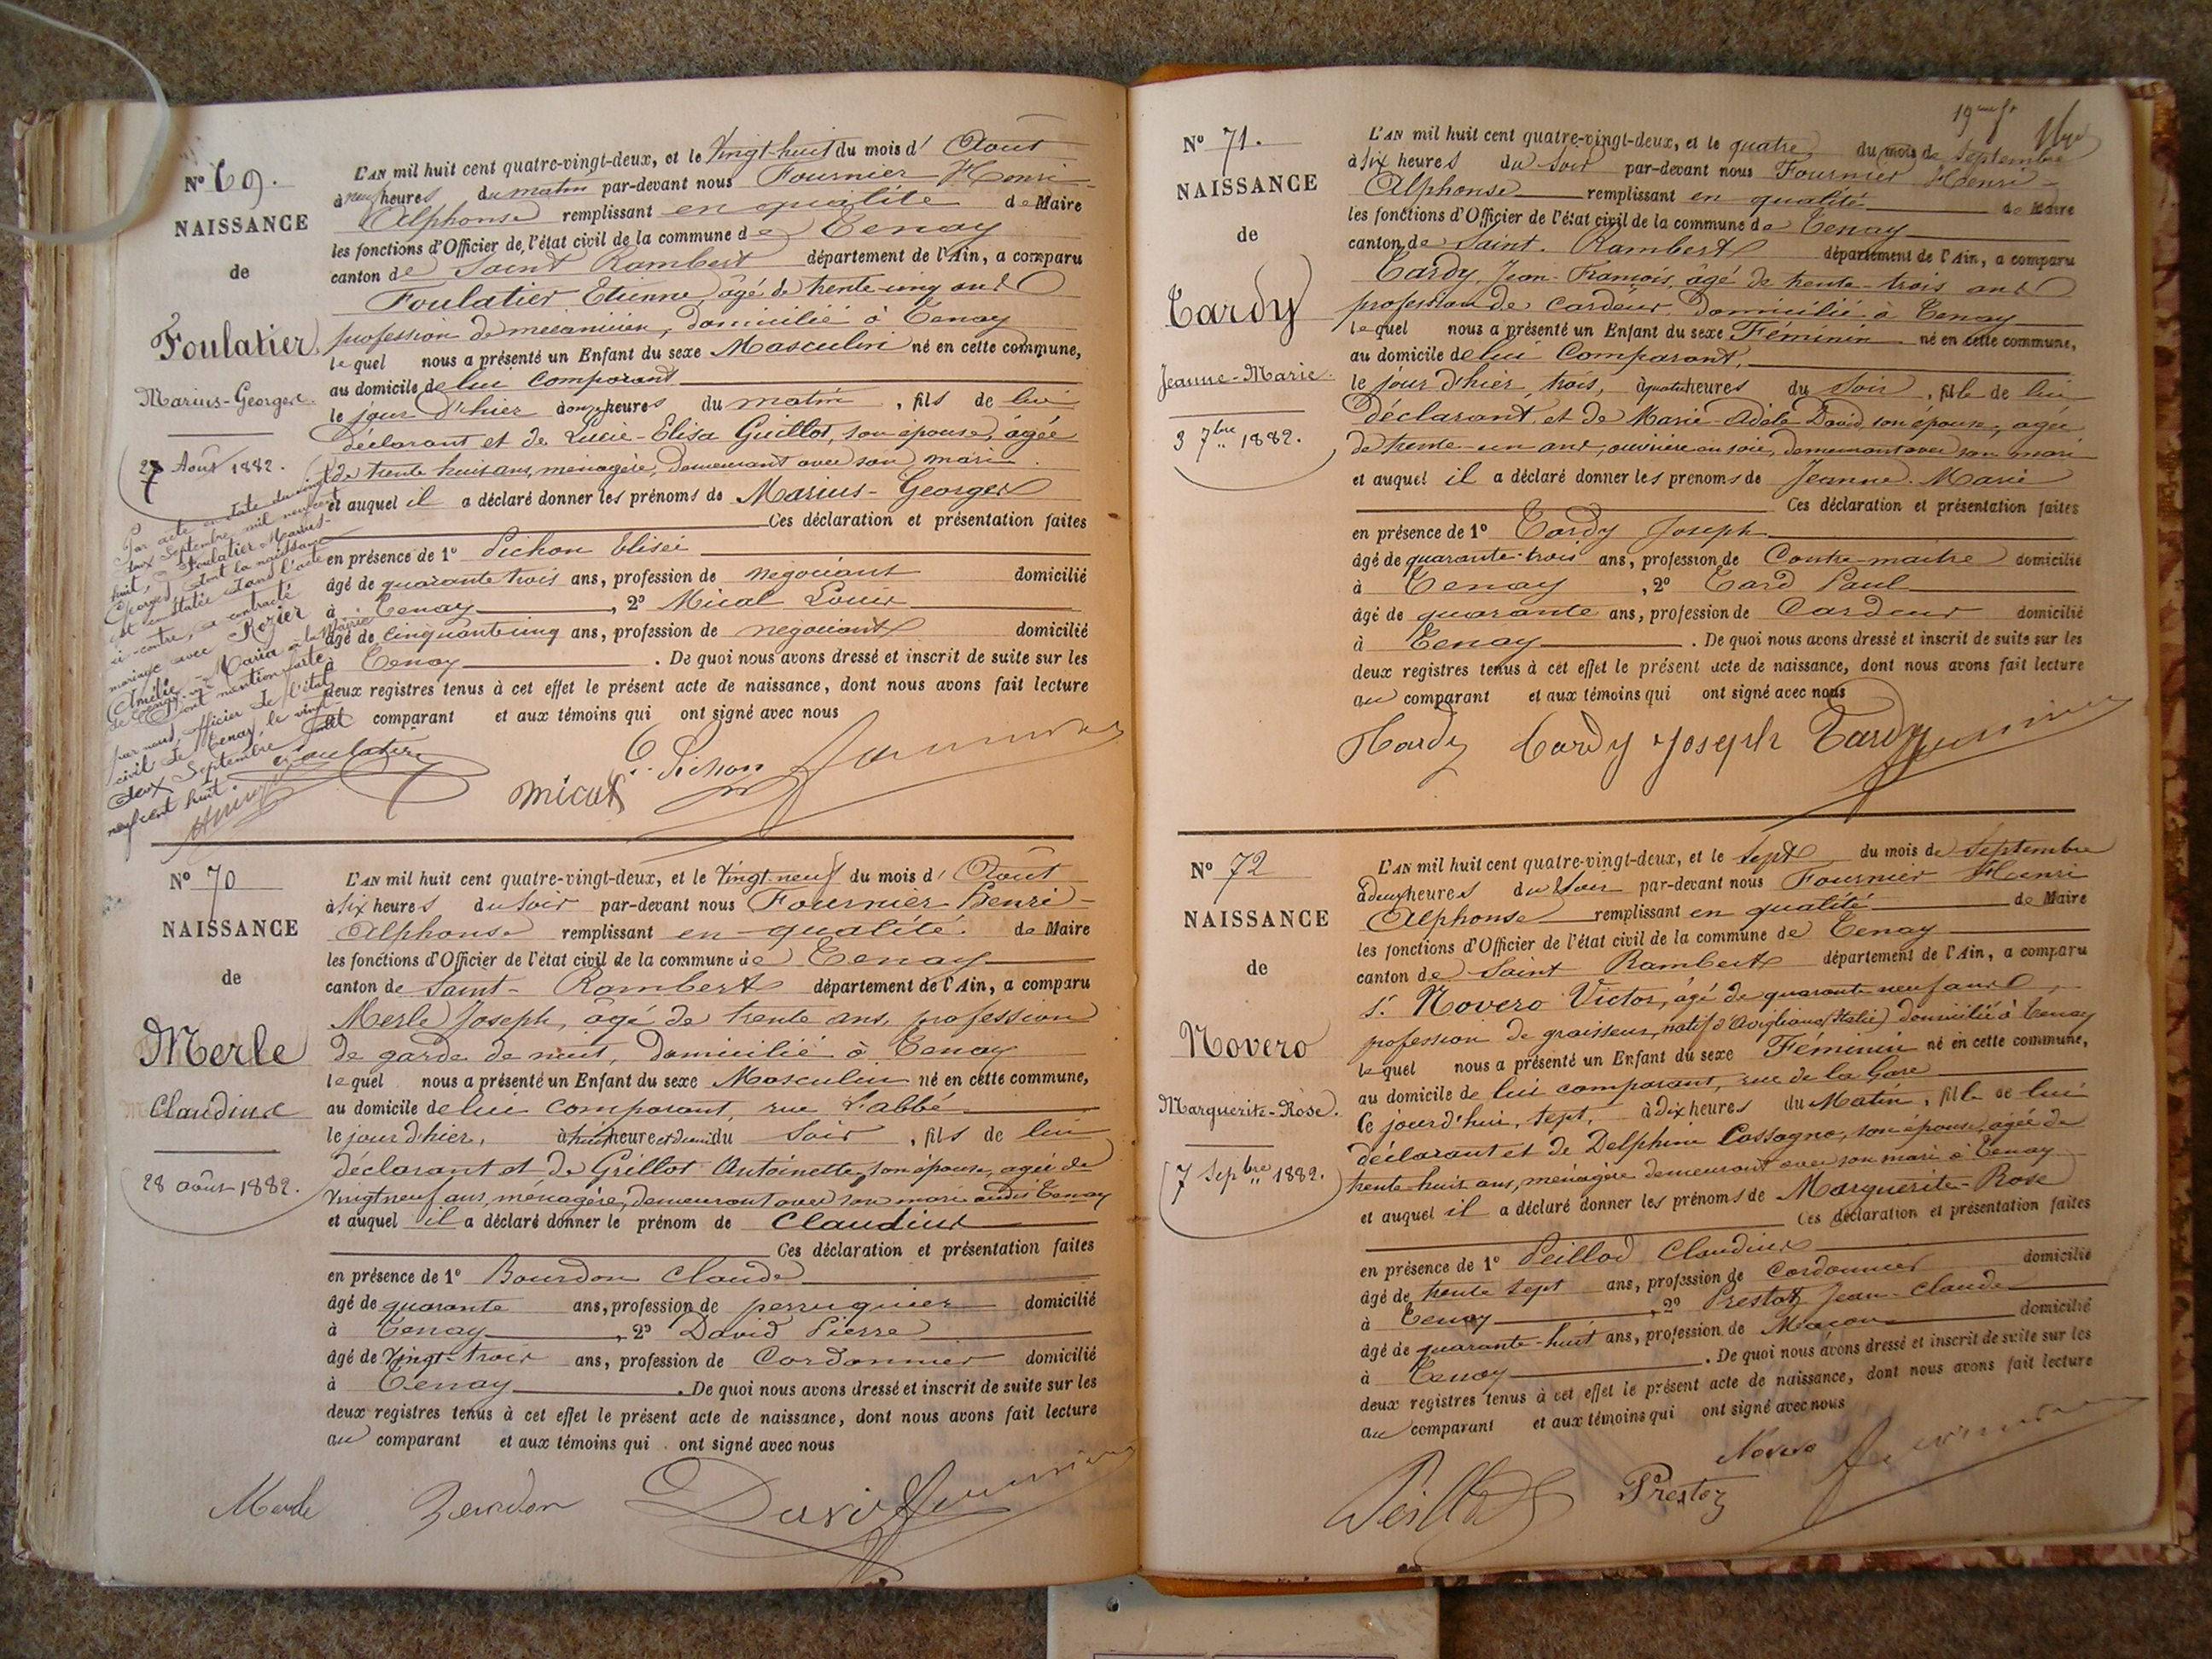 N° 69.
NAISSANCE
de
Foulatier
Marius-Georges.
27 Août 1882.
Par acte en date du vingt
deux Septembre mil neuf cent
huit, Foulatier Marius-
Georges, dont la naissance
est constatée dans l'acte
ci-contre, a contracté
mariage avec Rozier
Amélie Maria à la Mairie
de Tenay.
Dont mention faite
par nous, officier de l'état
civil de Tenay, le vingt
deux Septembre mil
neuf cent huit.
L'AN mil huit cent quatre-vingt-deux, et le Vingt-huit du mois d' Août
à neuf heures du matin par-devant nous Fournier Henri-
Alphonse remplissant en qualité de Maire
les fonctions d'Officier de l'état civil de la commune de Tenay
canton de Saint Rambert département de l'Ain, a comparu
Foulatier Etienne, âgé de trente-cinq ans
profession de mécanicien, domicilié à Tenay
lequel nous a présenté un Enfant du sexe Masculin né en cette commune,
au domicile de lui comparant
le jour d'hier à onze heures du matin, fils de lui
déclarant et de Lucie-Elisa Guillot, son épouse, âgée
de trente huit ans, ménagère, demeurant avec son mari
et auquel il a déclaré donner les prénoms de Marius-Georges
Ces déclaration et présentation faites
en présence de 1° Pichon Elisée
âgé de quarante trois ans, profession de négociant domicilié
à Tenay, 2° Micat Louis
âgé de cinquante cinq ans, profession de négociant domicilié
à Tenay. De quoi nous avons dressé et inscrit de suite sur les
deux registres tenus à cet effet le présent acte de naissance, dont nous avons fait lecture
au comparant et aux témoins qui ont signé avec nous
Foulatier Micat E. Pichon Fournier
N° 70
NAISSANCE
de
Merle
Claudius
28 août 1882.
L'AN mil huit cent quatre-vingt-deux, et le Vingt-neuf du mois d' Août
à six heures du soir par-devant nous Fournier Henri-
Alphonse remplissant en qualité de Maire
les fonctions d'Officier de l'état civil de la commune de Tenay
canton de Saint-Rambert département de l'Ain, a comparu
Merle Joseph, âgé de trente ans, profession
de garde de nuit, domicilié à Tenay
lequel nous a présenté un Enfant du sexe Masculin né en cette commune,
au domicile de lui comparant, rue Labbé
le jour d'hier, à heure et demi du soir, fils de lui
déclarant et de Grillot Antoinette, son épouse, âgée de
vingt neuf ans, ménagère, demeurant avec son mari audit Tenay
et auquel il a déclaré donner le prénom de Claudius
Ces déclaration et présentation faites
en présence de 1° Bourdon Claude
âgé de quarante ans, profession de perruquier domicilié
à Tenay, 2° David Pierre
âgé de Vingt-trois ans, profession de Cordonnier domicilié
à Tenay. De quoi nous avons dressé et inscrit de suite sur les
deux registres tenus à cet effet le présent acte de naissance, dont nous avons fait lecture
au comparant et aux témoins qui ont signé avec nous
Merle Bourdon David Fournier
19me ft
N° 71.
NAISSANCE
de
Tardy
Jeanne-Marie.
3 7bre 1882.
L'AN mil huit cent quatre-vingt-deux, et le quatre du mois de Septembre
à six heures du soir par-devant nous Fournier Henri-
Alphonse remplissant en qualité de Maire
les fonctions d'Officier de l'état civil de la commune de Tenay
canton de Saint-Rambert département de l'Ain, a comparu
Tardy, Jean-François, âgé de trente-trois ans
profession de cardeur, domicilié à Tenay
lequel nous a présenté un Enfant du sexe Féminin né en cette commune,
au domicile de lui Comparant,
le jour d'hier, trois, à quatre heures du soir, fille de lui
déclarant, et de Marie-Adèle David son épouse, âgée
de trente-un ans, ouvrière en soie, demeurant avec son mari
et auquel il a déclaré donner les prénoms de Jeanne-Marie
Ces déclaration et présentation faites
en présence de 1° Tardy Joseph
âgé de quarante-trois ans, profession de Contre-maître domicilié
à Tenay, 2° Tard Paul
âgé de quarante ans, profession de Cardeur domicilié
à Tenay. De quoi nous avons dressé et inscrit de suite sur les
deux registres tenus à cet effet le présent acte de naissance, dont nous avons fait lecture
au comparant et aux témoins qui ont signé avec nous
Tardy Tardy Joseph Tardy Fournier
N° 72
NAISSANCE
de
Novero
Marguerite-Rose.
7 Sepbre 1882.
L'AN mil huit cent quatre-vingt-deux, et le sept du mois de Septembre
à deux heures du soir par-devant nous Fournier Henri
Alphonse remplissant en qualité de Maire
les fonctions d'Officier de l'état civil de la commune de Tenay
canton de Saint Rambert département de l'Ain, a comparu
Sr. Novero Victor, âgé de quarante neuf ans,
profession de graisseur, natif d'Avigliano (Italie) domicilié à Tenay
lequel nous a présenté un Enfant du sexe Féminin né en cette commune,
au domicile de lui comparant, rue de la Gare
ce jourd'hui, sept, à dix heures du Matin, fille de lui
déclarant et de Delphine Cassagno, son épouse, âgée de
trente-huit ans, ménagère demeurant avec son mari à Tenay
et auquel il a déclaré donner les prénoms de Marguerite-Rose
Ces déclaration et présentation faites
en présence de 1° Peillod Claudius
âgé de trente sept ans, profession de Cordonnier domicilié
à Tenay, 2° Prestoz Jean-Claude
âgé de quarante-huit ans, profession de Maçon domicilié
à Tenay. De quoi nous avons dressé et inscrit de suite sur les
deux registres tenus à cet effet le présent acte de naissance, dont nous avons fait lecture
au comparant et aux témoins qui ont signé avec nous
Peillod Prestoz Novero Fournier